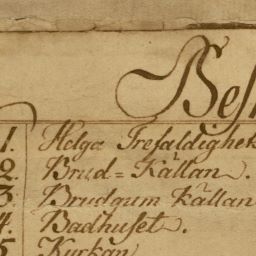 Bes
1. Helga Trefaldighet
2. Brud=Källan.
3. Brudgum Källan
4. Badhuset.
5 Kyrkan